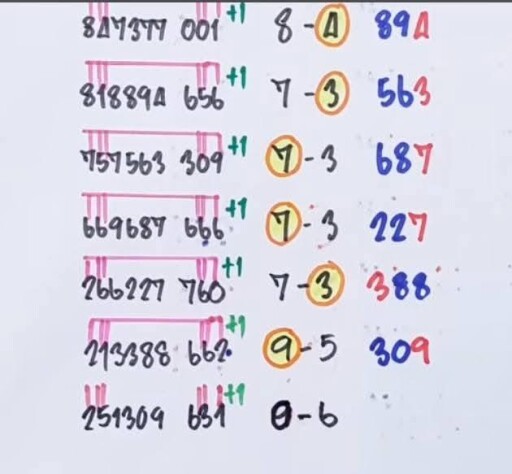 847377 001 +1 8-4 894
818894 656 +1 7-3 563
757563 309 +1 7-3 687
669687 666 +1 7-3 227
266227 760 +1 7-3 388
213388 662 +1 9-5 309
251309 631 +1 0-6